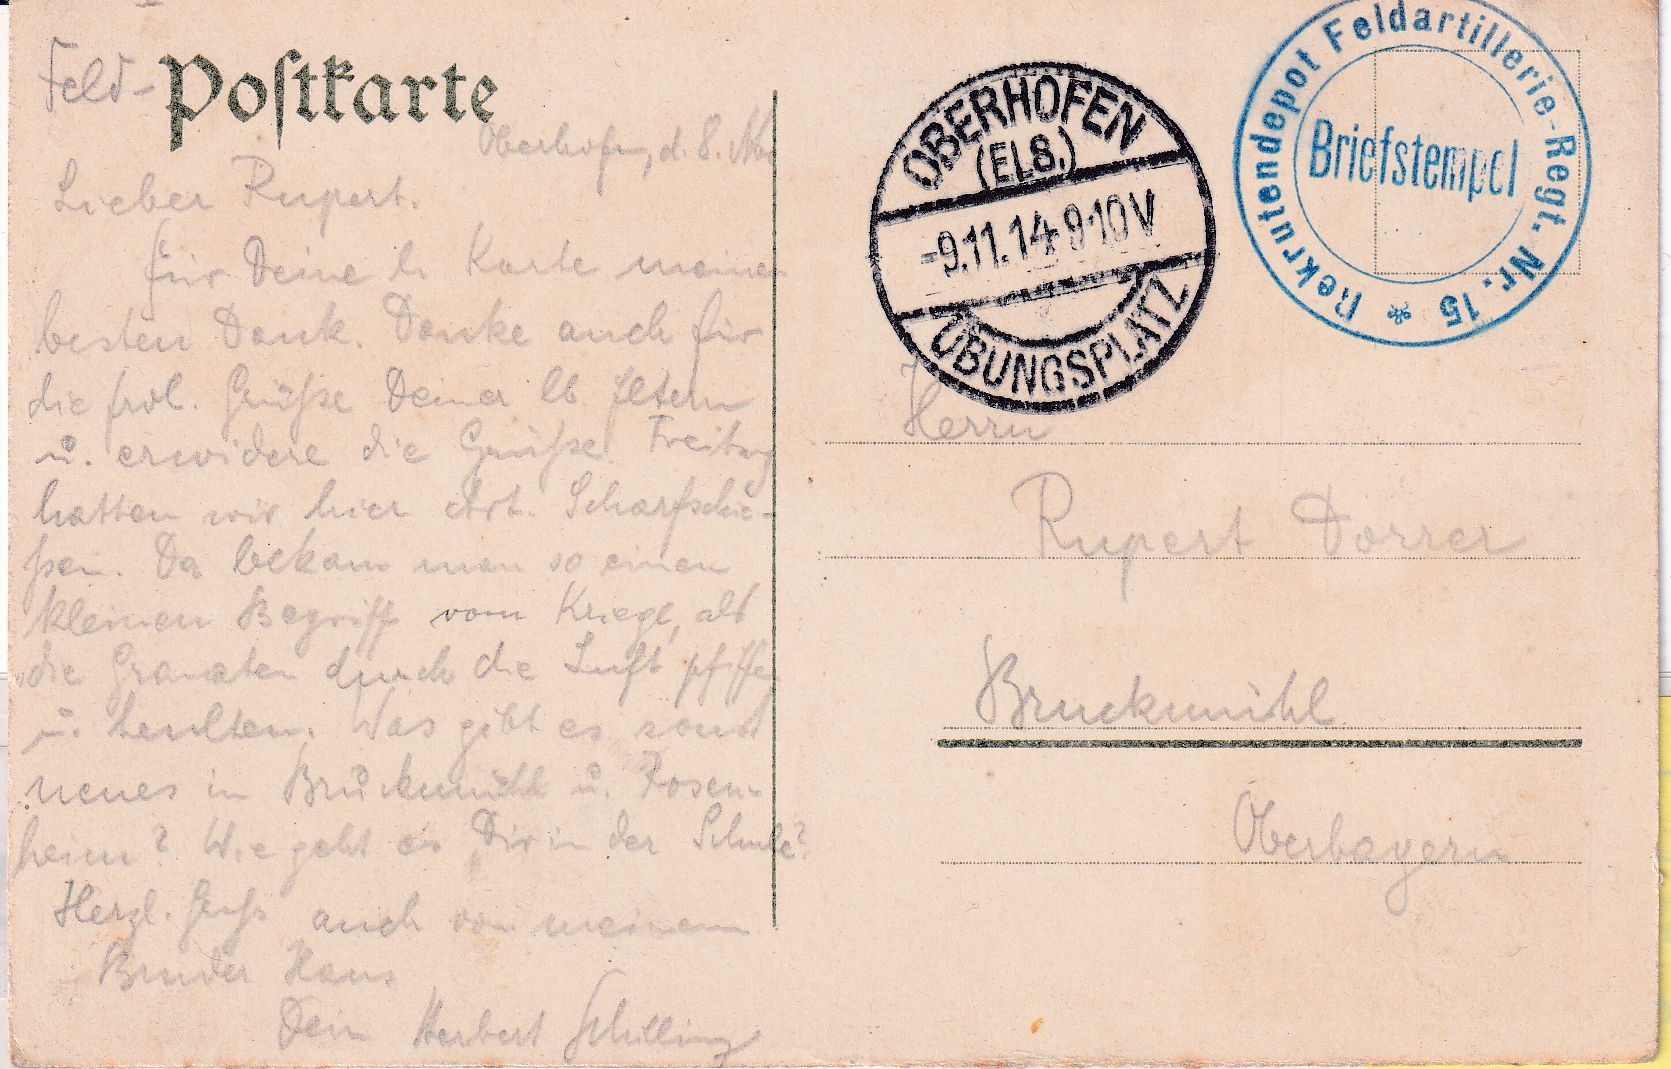 Feld-Postkarte
Oberhofen, d. 8. Nov
Lieber Rupert.
Für Deine lb. Karte meinen
besten Dank. Danke auch für
die frdl. Grüße Deiner lb. Eltern
u. erwidere die Grüße. Freitag
hatten wir hier Art. Scharfschie-
ßen. Da bekam man so einen
kleinen Begriff vom Kriege, als
die Granaten durch die Luft pfiffen
u. heulten. Was gibt es sonst
neues in Bruckmühl u. Rosen-
heim? Wie geht es Dir in der Schule?
Herzl. Gruß auch von meinem
Bruder Hans
Dein Herbert Schilling
OBERHOFEN
(ELS.)
-9.11.14 9-10V
ÜBUNGSPLATZ
Rekrutendepot Feldartillerie-Regt. Nr. 15
Briefstempel
Herrn
Rupert Dorrer
Bruckmühl
Oberbayern